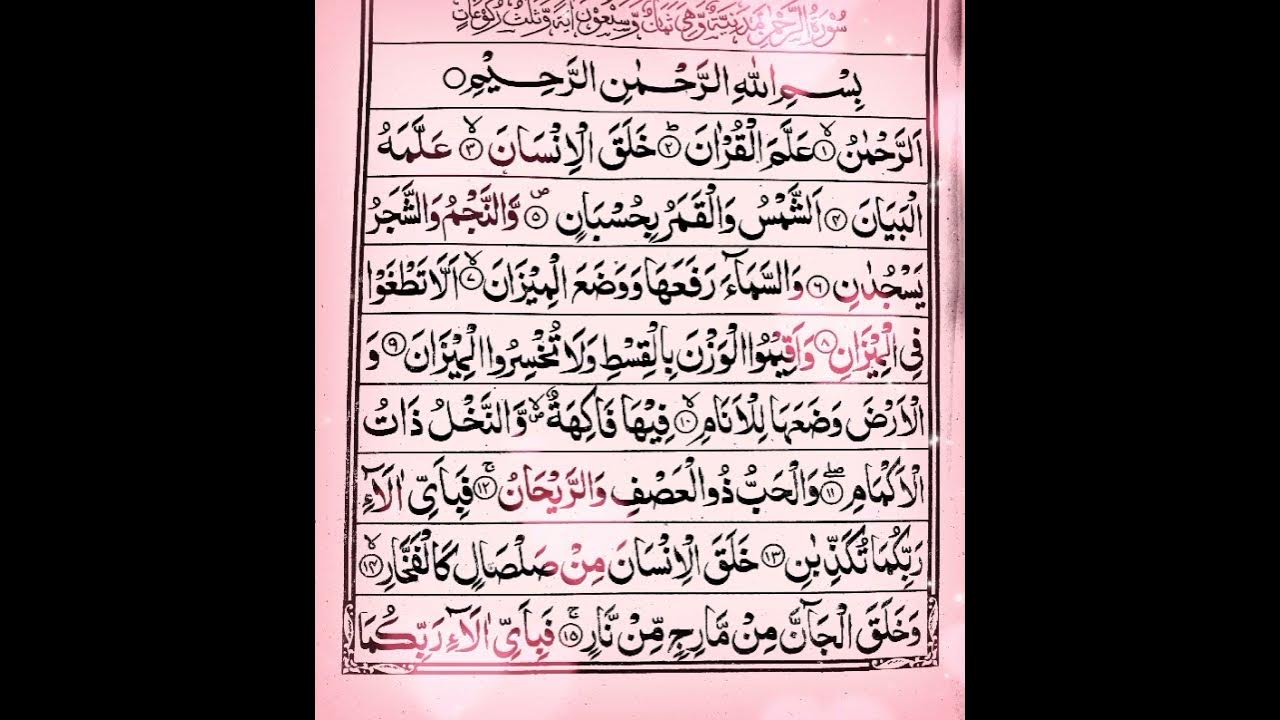 سُوْرَةُ الرَّحْمٰنِ مَدَنِيَّةٌ وَّهِيَ ثَمَانٌ وَّسَبْعُوْنَ اٰيَةً وَّثَلٰثُ رُكُوْعَاتٍ
بِسْمِ اللّٰهِ الرَّحْمٰنِ الرَّحِيْمِ ○
اَلرَّحْمٰنُ ۙ﴿۱﴾ عَلَّمَ الْقُرْاٰنَ ؕ﴿۲﴾ خَلَقَ الْاِنْسَانَ ۙ﴿۳﴾ عَلَّمَهُ
الْبَيَانَ ﴿۴﴾ اَلشَّمْسُ وَالْقَمَرُ بِحُسْبَانٍ ۪﴿۵﴾ وَّالنَّجْمُ وَالشَّجَرُ
يَسْجُدٰنِ ﴿۶﴾ وَالسَّمَآءَ رَفَعَهَا وَوَضَعَ الْمِيْزَانَ ۙ﴿۷﴾ اَلَّا تَطْغَوْا
فِى الْمِيْزَانِ ﴿۸﴾ وَاَقِيْمُوا الْوَزْنَ بِالْقِسْطِ وَلَا تُخْسِرُوا الْمِيْزَانَ ﴿۹﴾ وَ
الْاَرْضَ وَضَعَهَا لِلْاَنَامِ ۙ﴿۱۰﴾ فِيْهَا فَاكِهَةٌ ۪ۙ وَّالنَّخْلُ ذَاتُ
الْاَكْمَامِ ۖ﴿۱۱﴾ وَالْحَبُّ ذُو الْعَصْفِ وَالرَّيْحَانُ ۚ﴿۱۲﴾ فَبِاَىِّ اٰلَآءِ
رَبِّكُمَا تُكَذِّبٰنِ ﴿۱۳﴾ خَلَقَ الْاِنْسَانَ مِنْ صَلْصَالٍ كَالْفَخَّارِ ۙ﴿۱۴﴾
وَخَلَقَ الْجَآنَّ مِنْ مَّارِجٍ مِّنْ نَّارٍ ۚ﴿۱۵﴾ فَبِاَىِّ اٰلَآءِ رَبِّكُمَا